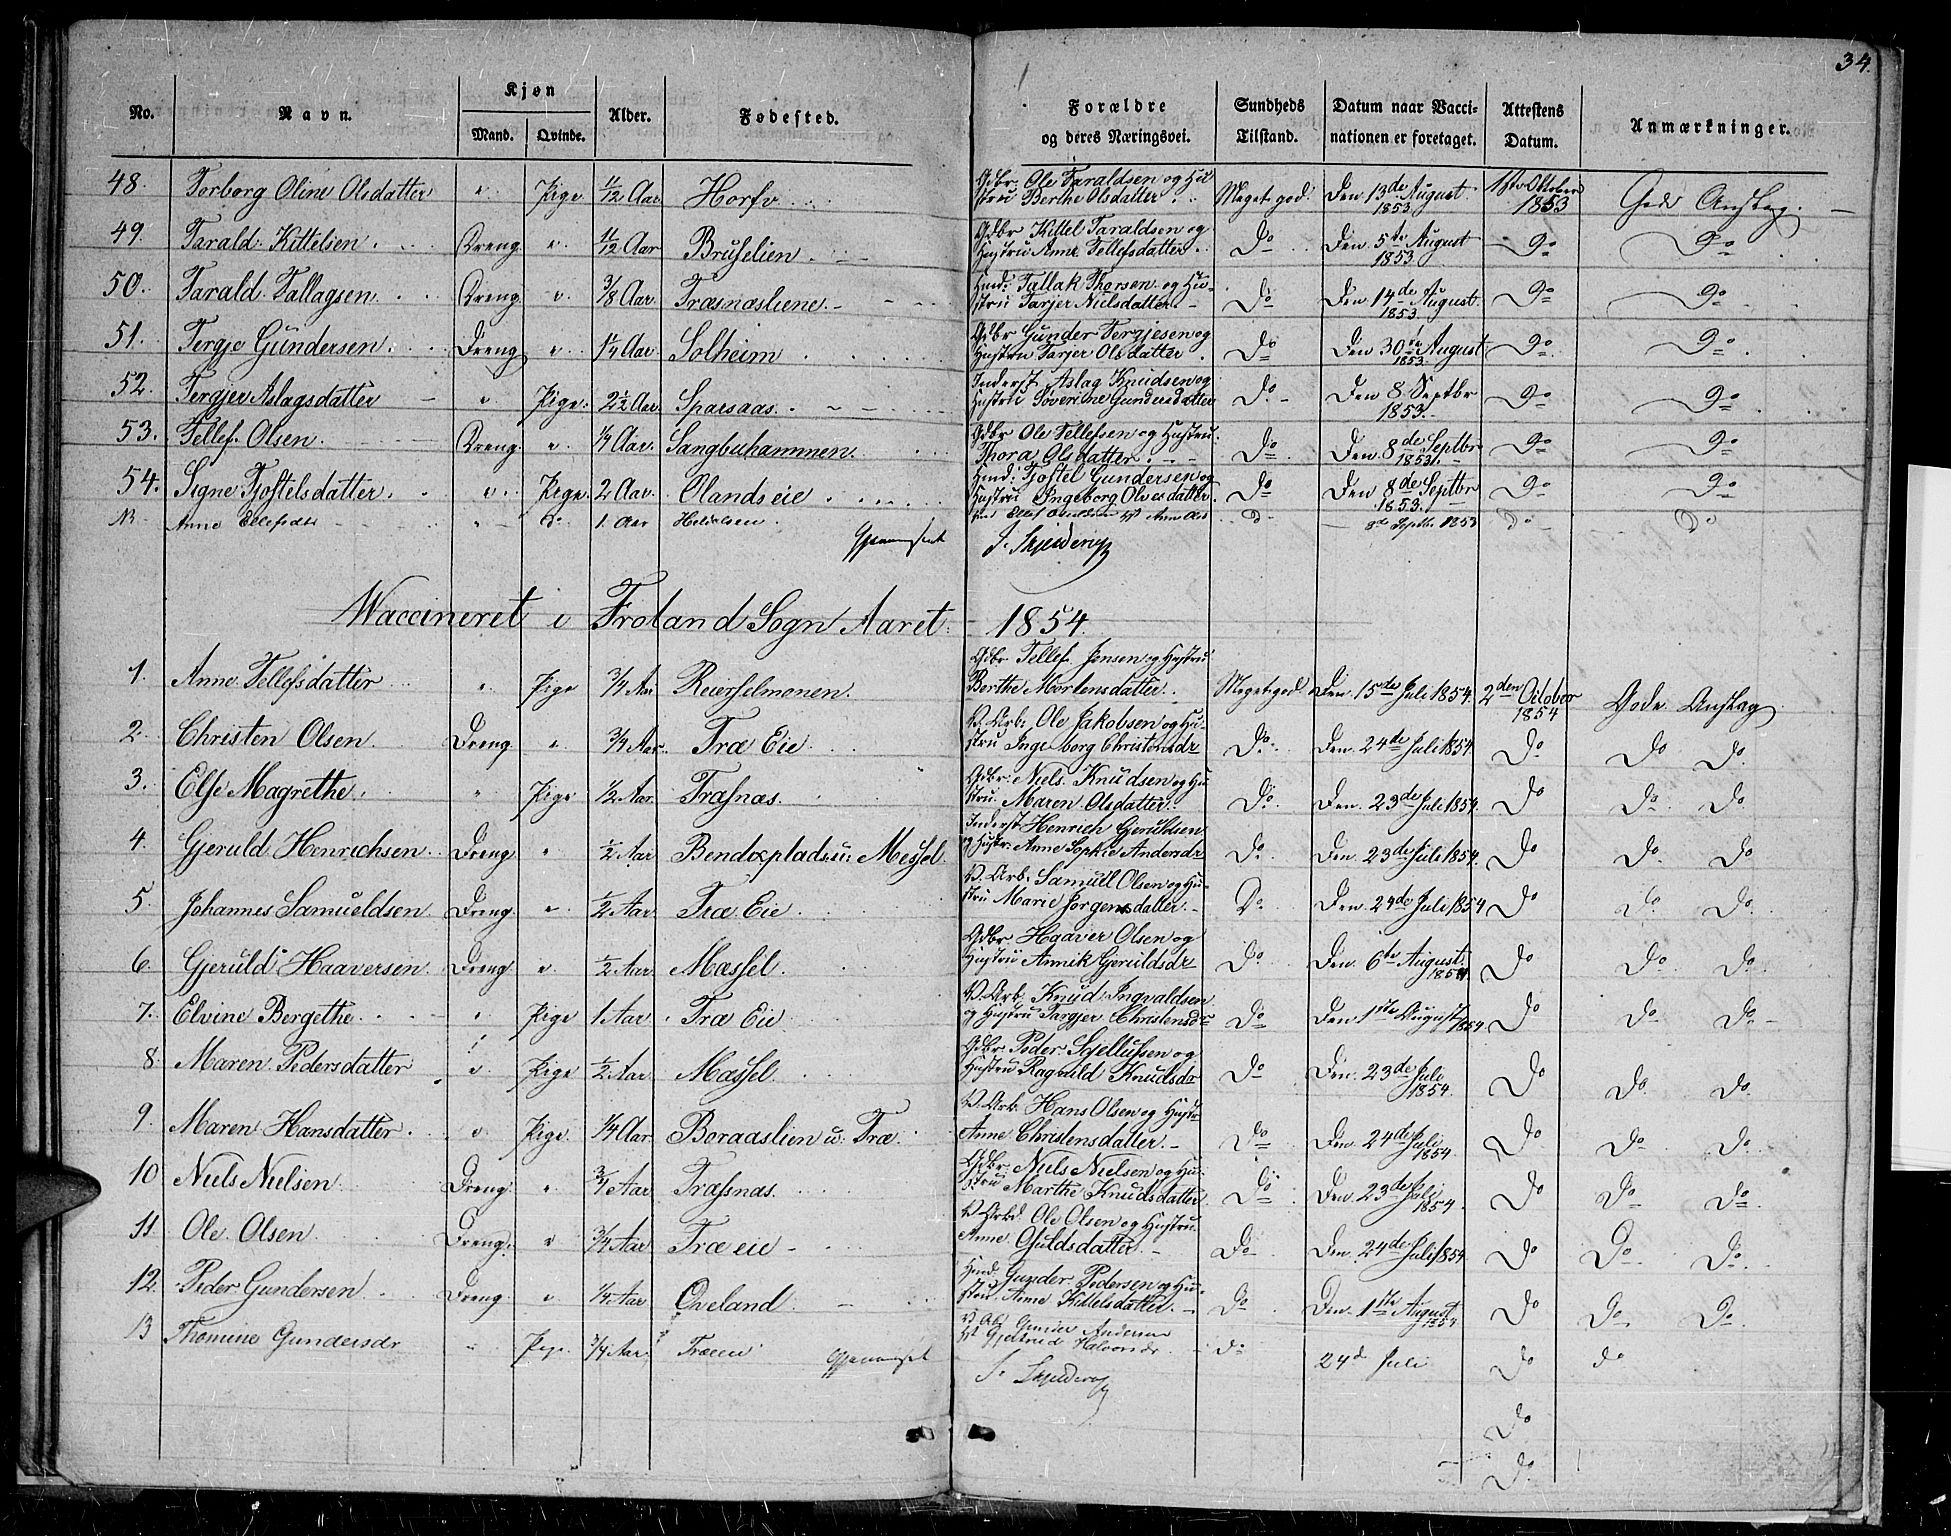 34.
No. Navn. Kjøn Mand. Qvinde. Alder. Fødested. Forældre og deres Næringsvei. Sundheds Tilstand. Datum naar Vaccinationen er foretaget. Attestens Datum. Anmærkninger.
48. Torborg Oline Olsdatter " Pige 11/12 Aar Horfv Gdbr. Ole Taraldsen og Hustru Berthe Olsdatter Meget god. Den 13de August 1853 1ste Oktober 1853 Gode Anslag.
49. Tarald Kittelsen Dreng " 11/12 Aar Bruselien Gdbr Kittel Taraldsen og Hustru Anne Tellefsdatter Do Den 5te August 1853 Do Do
50. Tarald Tallagsen Dreng " 3/8 Aar Træsnæsliene Hmd: Tallak Thorsen og Hustru Tarjer Nielsdatter Do Den 14de August 1853 Do Do
51. Tergje Gundersen Dreng " 1/4 Aar Solheim Gdbr Gunder Tergjesen og Hustru Tarjer Olsdatter Do Den 30te August 1853 Do Do
52. Tergjer Aslagsdatter " Pige 2 1/2 Aar Sparsaas Inderst Aslag Knudsen og Hustru Severine Gundersdatter Do Den 8 Septbr 1853 Do Do
53. Tellef Olsen Dreng " 1/4 Aar Sangbuhammen Gdbr Ole Tellefsen og Hustru Thora Olsdatter Do Den 8de Septbr 1853 Do Do
54. Signe Tjostelsdatter " Pige 2 Aar Olands eie Hmd: Tjostel Gundersen og Hustru Ingeborg Olvesdatter Do Den 8de Septbr 1853 Do Do
Anne Ellefsdtr " Do 1 Aar Do 8de Septbr 1853 Do Do
Gjennemseet
Waccineret i Froland Sogn Aaret 1854.
1. Anne Tellefsdatter " Pige 3/4 Aar Reierselmonen. Gdbr Tellef Jensen og Hustru Berthe Mortensdatter. Meget god. Den 15de Juli 1854. 2den October 1854 Gode Anslag
2. Christen Olsen Dreng " 3/4 Aar Træ Eie V. Arb: Ole Jakobsen og Hustru Ingeborg Christensdr Do Den 24de Juli 1854 Do Do Do
3. Else Magrethe " Pige 1/2 Aar Træsnæs. Gdbr: Niels Knudsen og Hustru Maren Olsdatter Do Den 23de Juli 1854. Do Do Do
4. Gjeruld Henrichsen Dreng " 1/2 Aar Bendixplads u: Messel Inderst Henrich Gjeruldsen og Hustr: Anne Sophie Andersdr Do Den 23de Juli 1854. Do Do Do
5. Johannes Samueldsen Dreng " 1/2 Aar Træ Eie V. Arb. Samuel Olsen og Hustru Marie Jørgensdatter Do Den 24de Juli 1854 Do Do Do
6. Gjeruld Haaversen Dreng " 1/2 Aar Mæssel. Gdbr Haaver Olsen og Hustru Annik Gjeruldsdr Do Den 6te August 1854 Do Do Do
7. Elvine Bergethe " Pige 1 Aar Træ Eie V. Arb. Knud Ingvaldsen og Hustru Targjer Christensdr Do Den 1ste August 1854. Do Do Do
8. Maren Pedersdatter " Pige 1/2 Aar Mæssel Gdbr Peder Sjellufsen og Hustru Ragnild Knudsdr Do Den 23de Juli 1854. Do Do Do
9. Maren Hansdatter " Pige 1/4 Aar Boraaslien u. Træ V. Arb. Hans Olsen og Hustr Anne Christensdatter Do Den 24de Juli 1854. Do Do Do
10 Niels Nielsen Dreng " 3/4 Aar Træsnæs Gdbr: Niels Nielsen og Hustru Marthe Knudsdatter Do Den 23de Juli 1854. Do Do Do
11. Ole Olsen Dreng " 3/4 Aar Træ eie V. Arbd. Ole Olsen og Hustru Anne Guldsdatter Do Den 24de Juli 1854 Do Do Do
12. Peder Gundersen Dreng " 1/4 Aar Oveland Hmd: Gunder Pedersen og Hustru Anne Kittelsdatter Do Den 1ste August 1854 Do Do Do
13 Thomine Gundersdr " Pige 3/4 Aar Træeie Gunder Andersen Gjertrud Halvorsdr do 24d Juli Do do
Gjennemseet
Do
Do